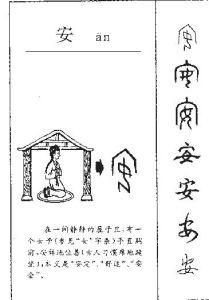 安 ān
在一间静静的屋子里，有一
个女子（参见“女”字条）手直胸
前，安详地坐着（古人习惯席地跪
坐）。本义是“安定”、“舒适”、“安
全”。
安
安
安
安